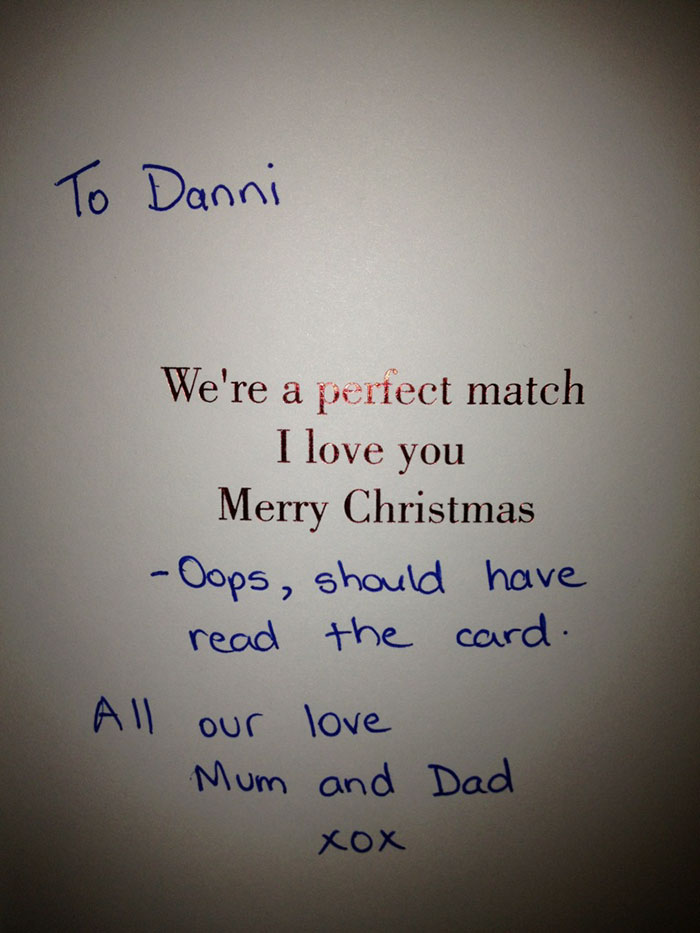 To Danni
We're a perfect match
I love you
Merry Christmas
-Oops, should have
read the card.
All our love
Mum and Dad
xox